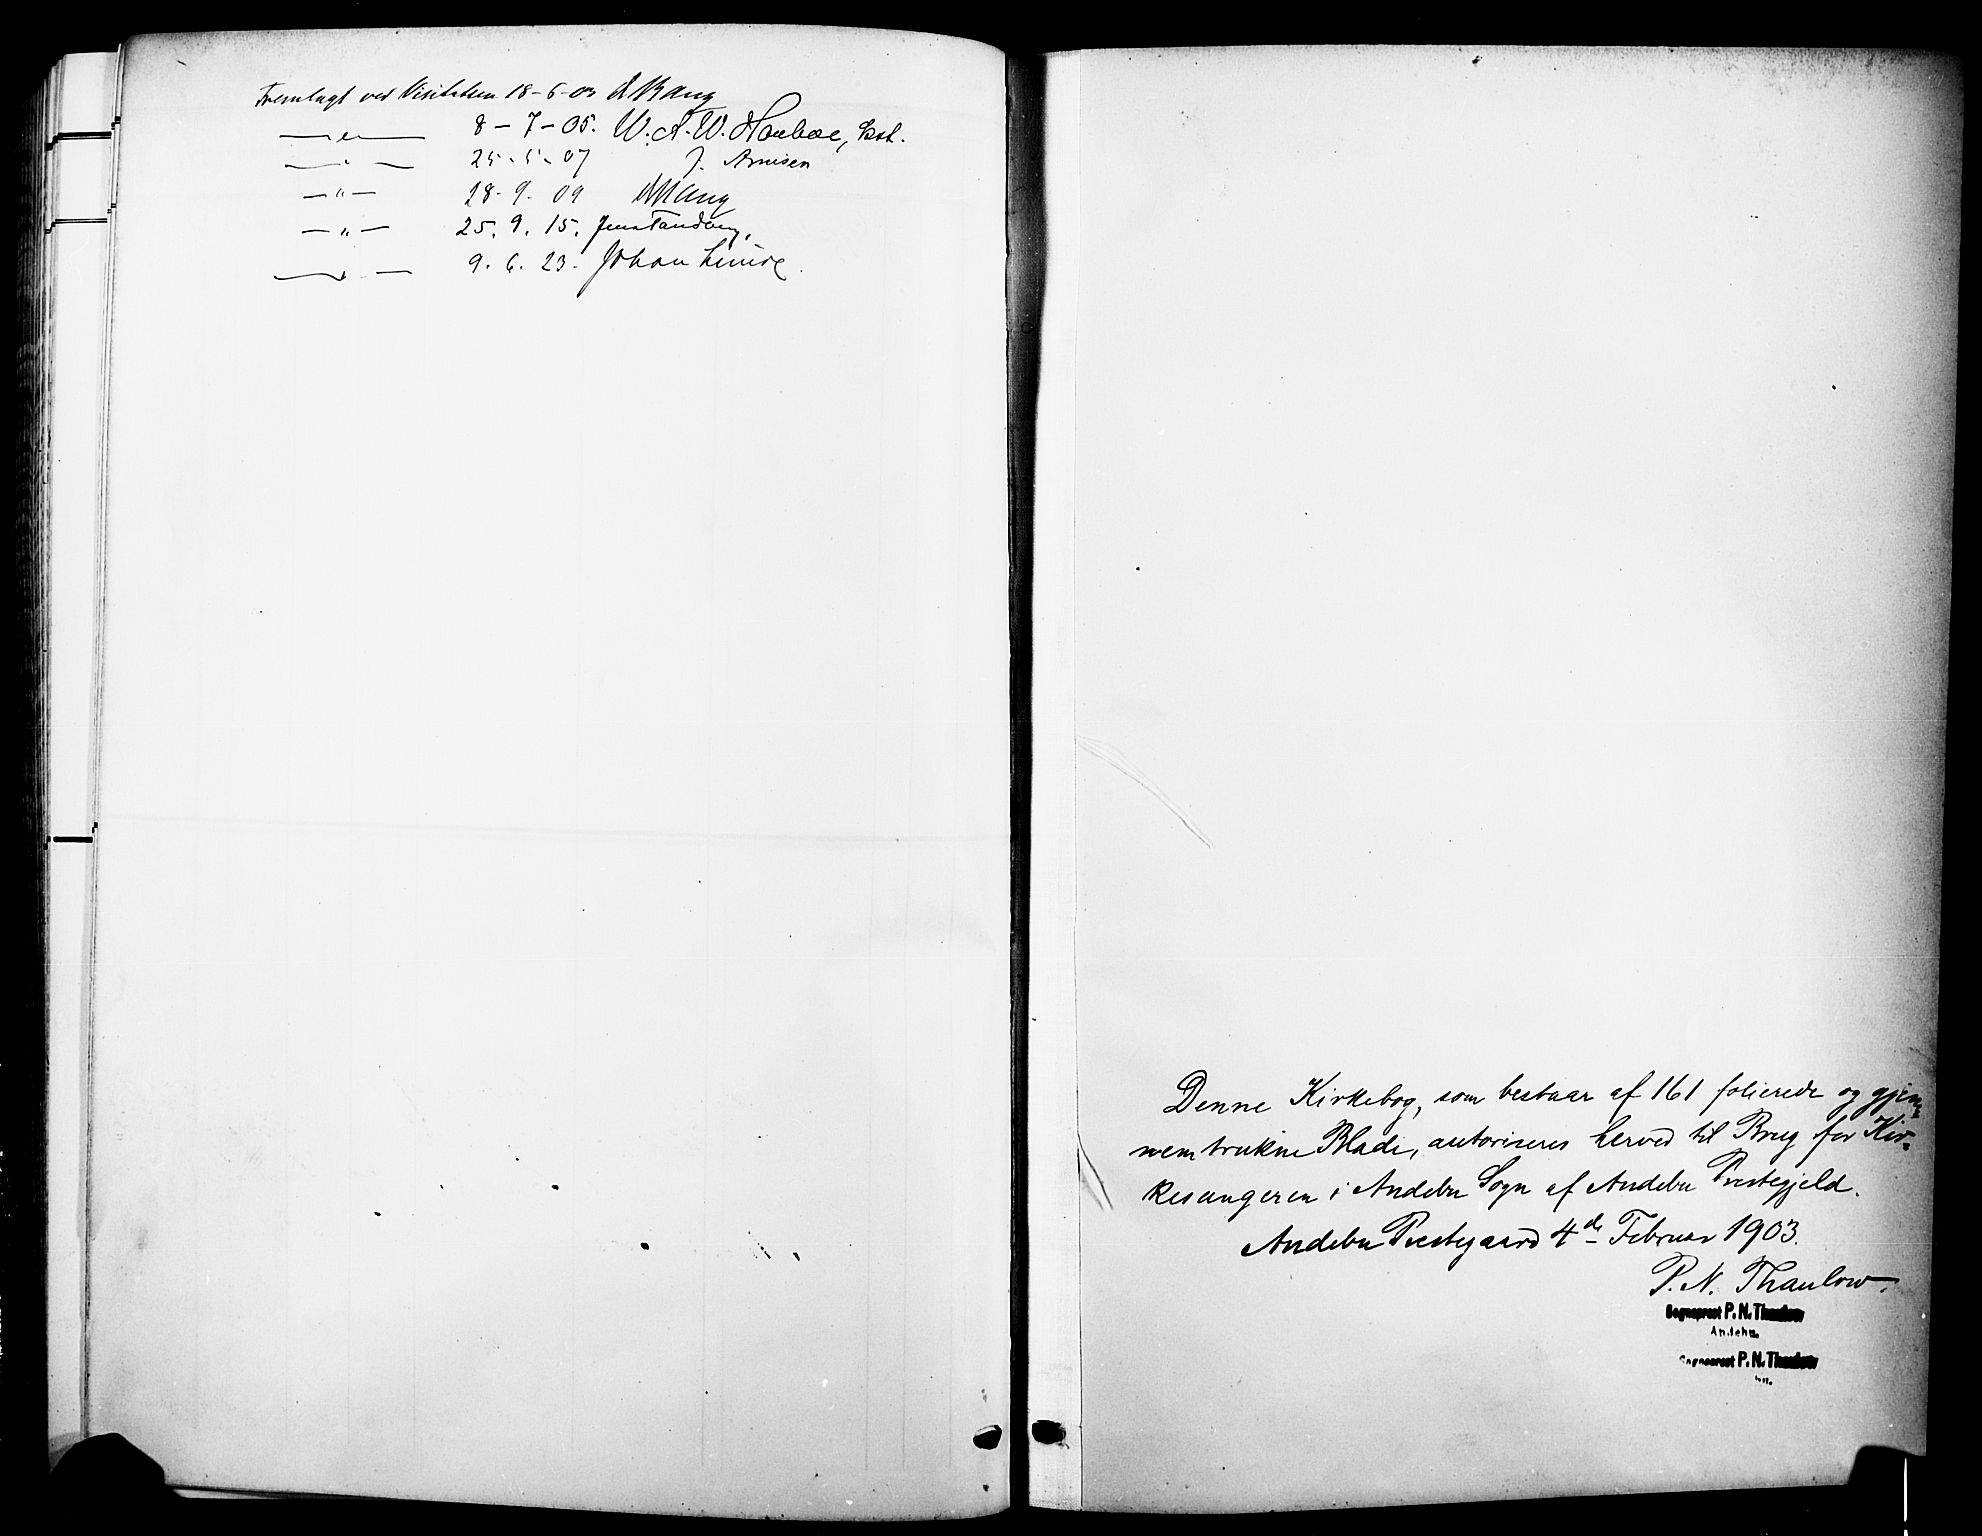 Fremlagt ved Visitatsen 18-6-03 A Bang
— " — 8-7-05. W. A. W. Haubae, kst.
— " — 25-5-07 J. Arnisen
— " — 28-9-09 A Bang
— " — 25. 9. 15. Jens Tandberg,
— " — 9. 6. 23. Johan Lunde.
Denne Kirkebog, som bestaar af 161 folierede og gjen-
nemtrukne Blade, autoriseres herved til Brug for Kir-
kesangeren i Andebu Sogn af Andebu Prestegjeld.
Andebu Prestegaard 4de Februar 1903.
P. N. Thaulow.
Sogneprest P. N. Thaulow
Andebu.
Sogneprest P. N. Thaulow